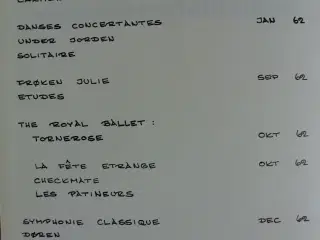 DANSES CONCERTANTES JAN 62
UNDER JORDEN
SOLITAIRE
FRØKEN JULIE SEP 62
ETUDES
THE ROYAL BALLET :
TORNEROSE OKT 62
LA FÊTE ETRANGE OKT 62
CHECKMATE
LES PATINEURS
SYMPHONIE CLASSIQUE DEC 62
DØREN